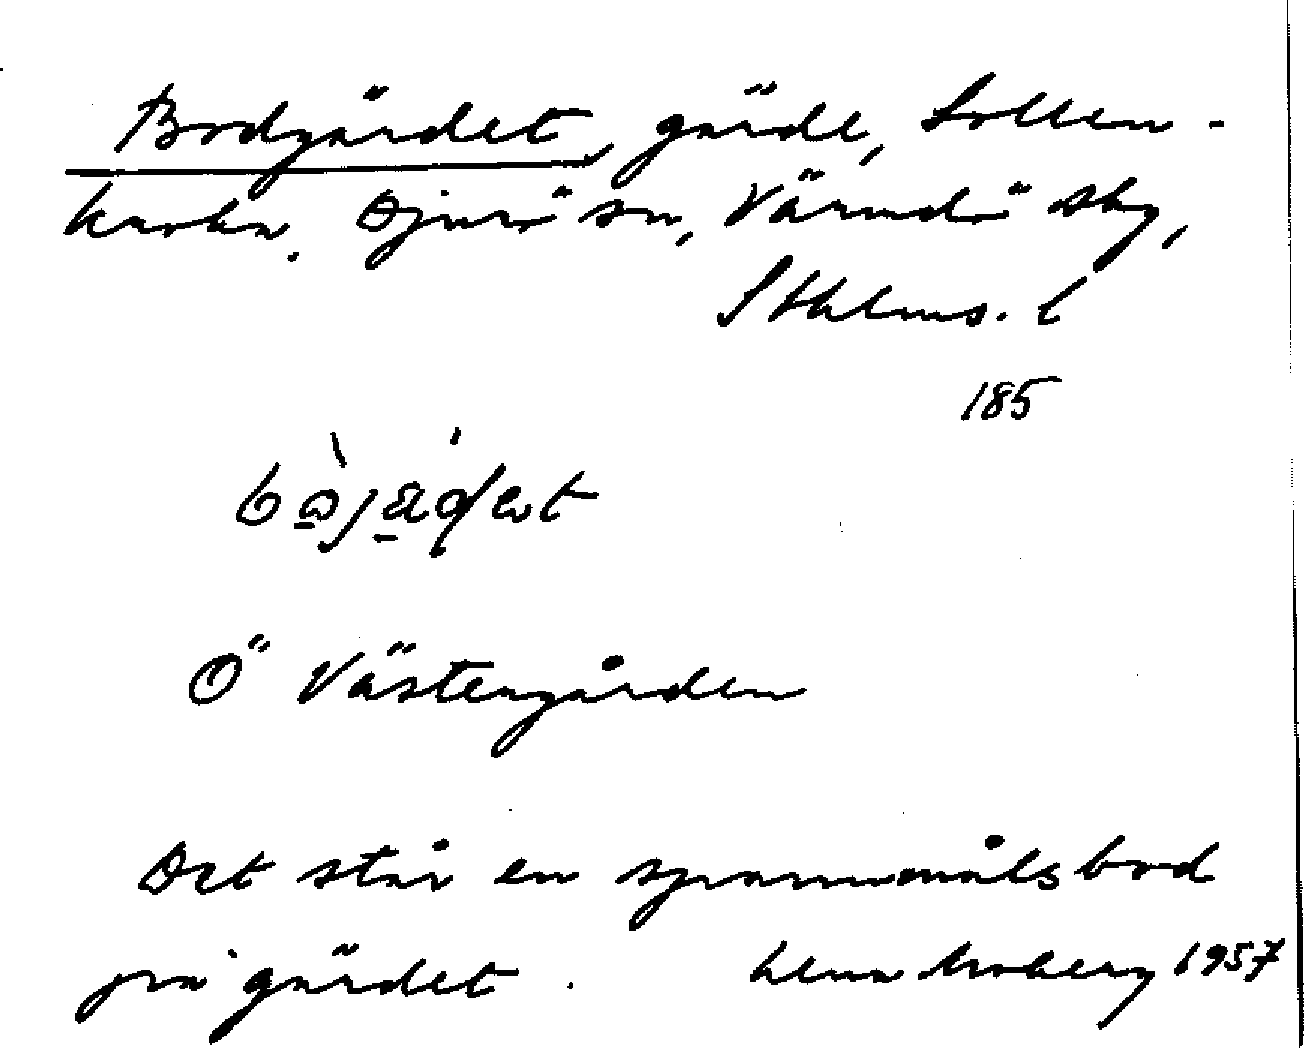 Bodgärdet, gärde, Sollen-
kroka. Djurö sn, Värmdö skg,
Sthlms. l
185
Ö Västergården
Det står en spannmålsbod
på gärdet. Lena Moberg 1957